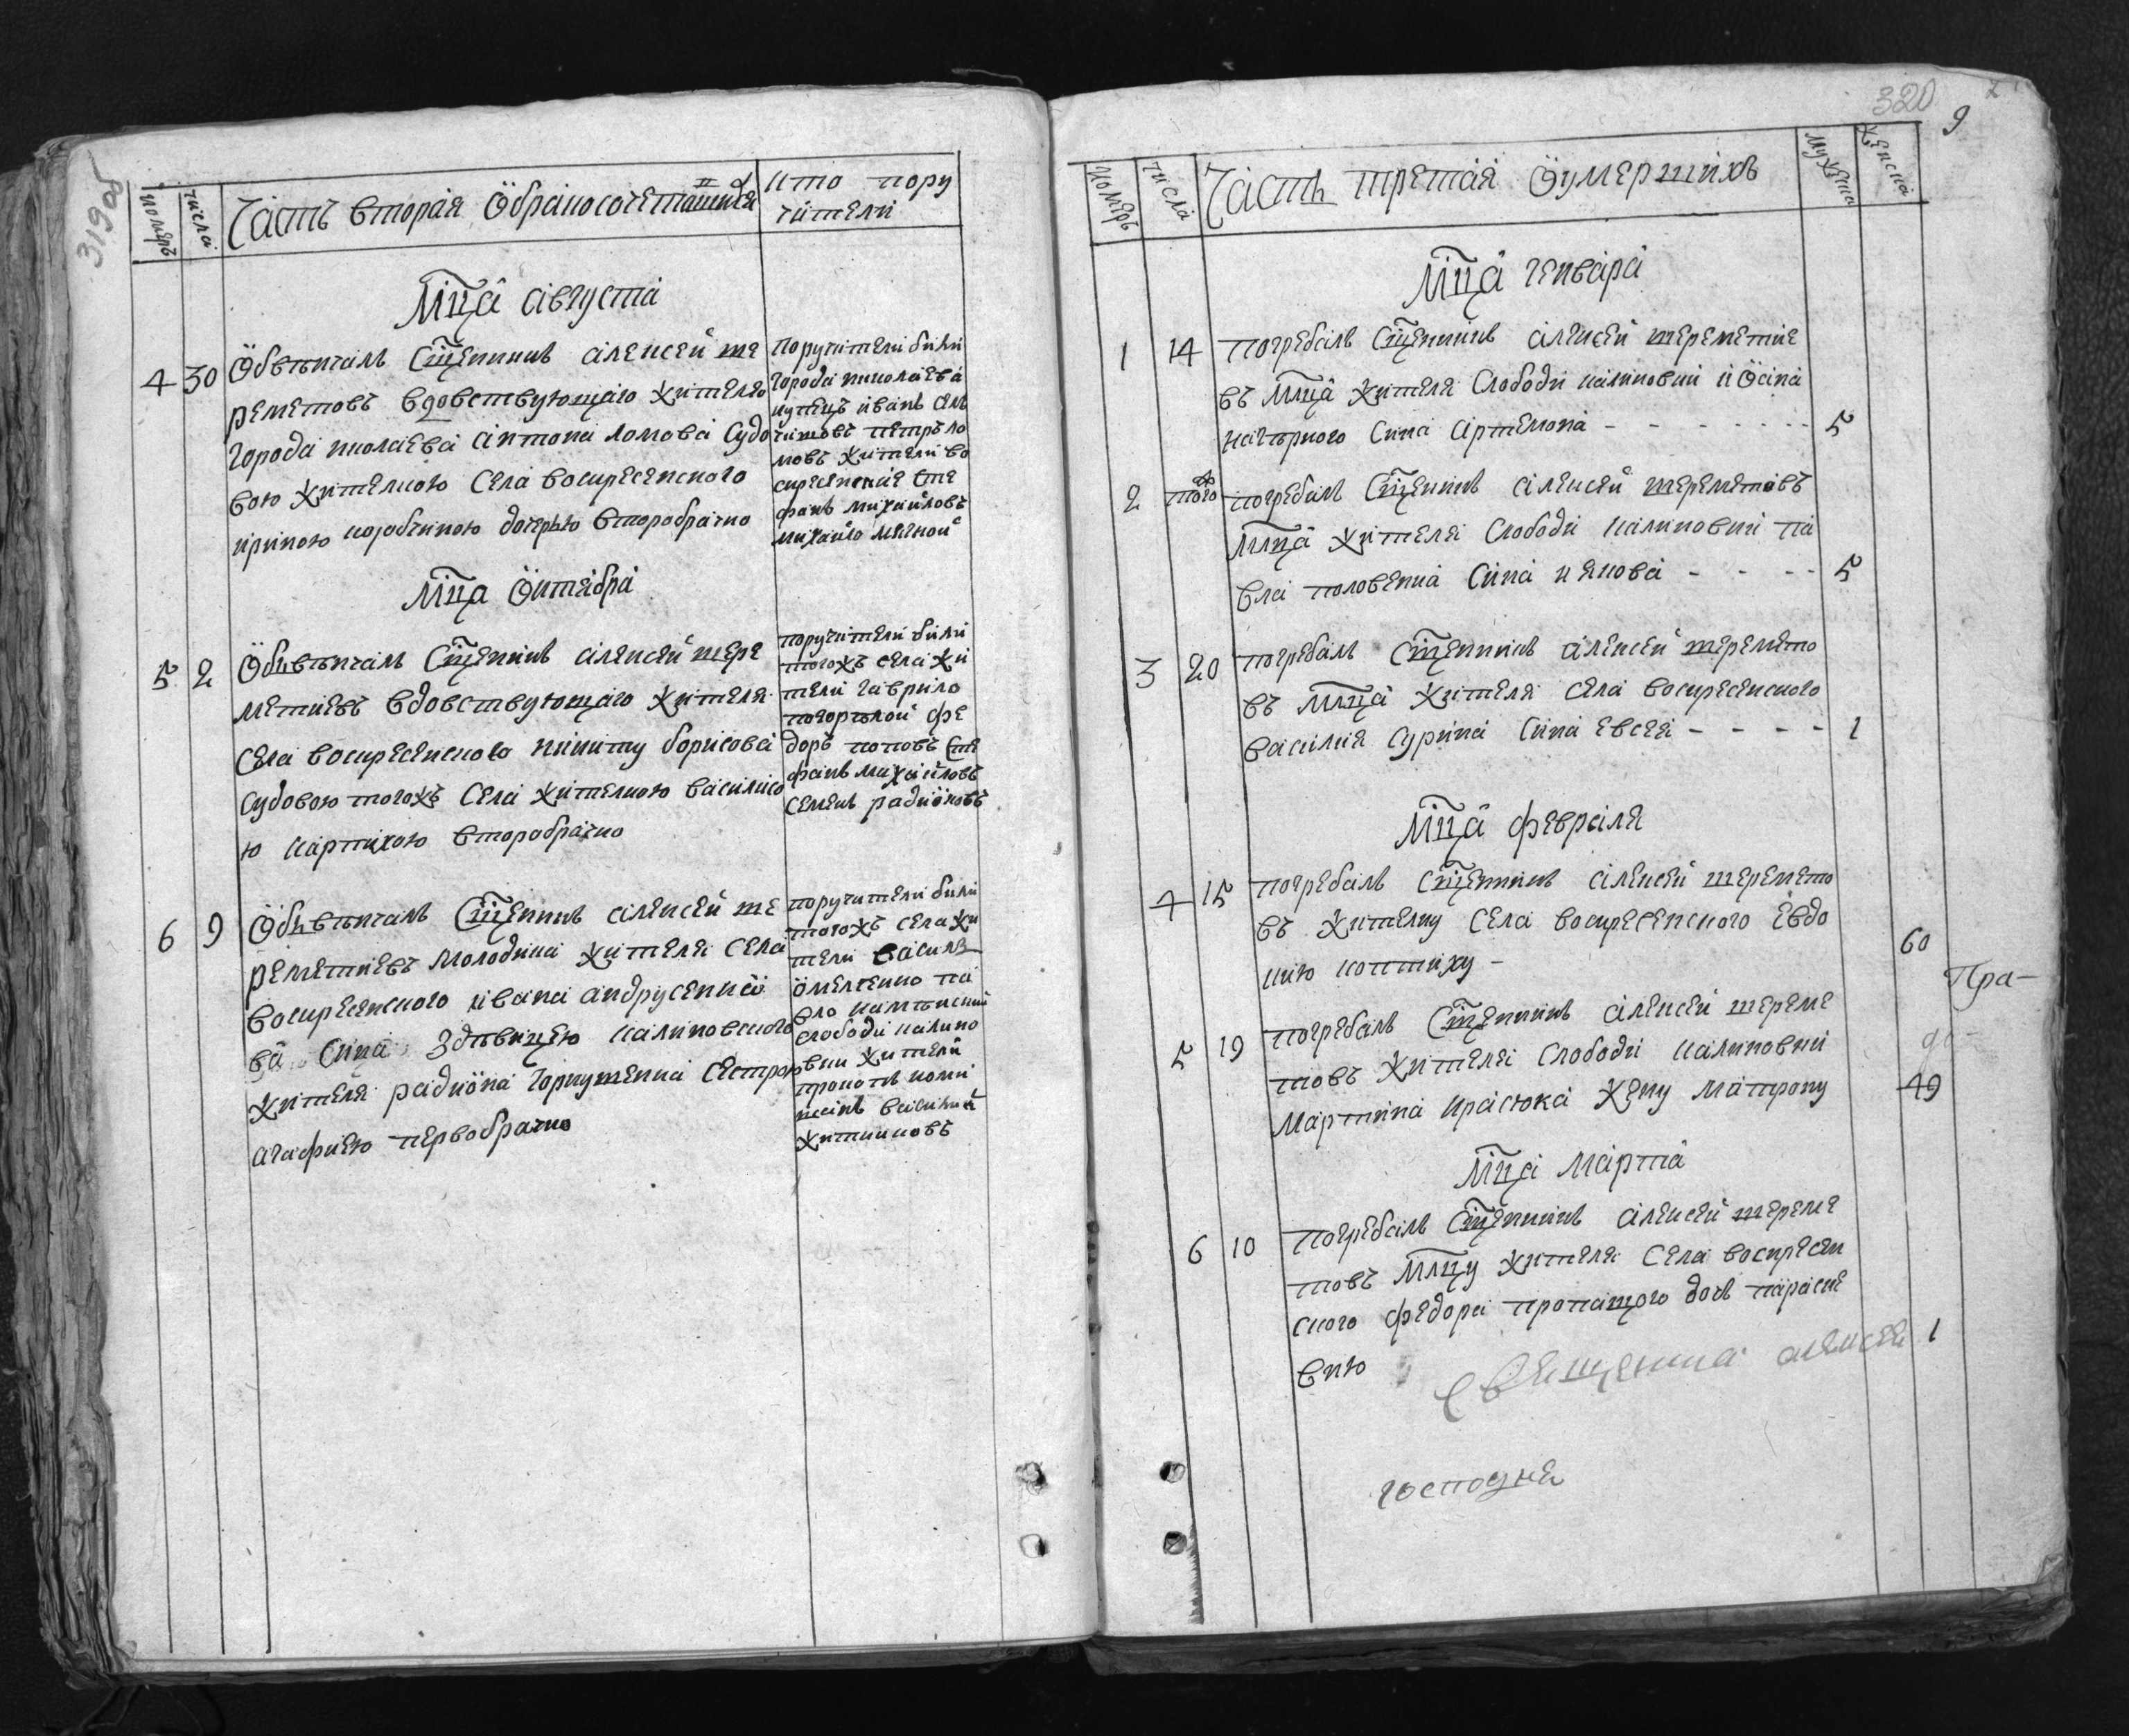 319об
номеръ
числа
Часть вторая Ö бракосочетавшихся
кто пору
чители
Мц҃а августа
4
30
Öбвѣнчалъ Сщ҃енникъ алексей ше
реметовъ вдовствующаго жителя
города николаева антона ломова Судо
вою жителкою Села воскресенского
ириною дочерью второбрачно
поручители били
города николаева
купецъ иванъ
петръ ло
мовъ жители во
скресенские Сте
фанъ михайловъ
михайло
Мц҃а Öктября
5
2
Öбвѣнчалъ Сщ҃енникъ алексей шере
метиевъ вдовствующаго жителя
Села воскресенского никиту борисова
Судовою тогожъ Села жителкою василисо
ю второбрачно
поручители били
тогожъ села жи
тели гаврило
погорѣлой фе
доръ поповъ Сте
фанъ михайловъ
Семенъ радиöновъ
6
9
Öбвѣнчалъ Сщ҃енникъ алексей ше
реметиевъ молодика жителя Села
воскресенского ивана андрусенко
ва Сина Здѣвицею калиновского
жителя радиöна горкушенка Сестрою
агафиею первобрачно
поручители били
тогожъ села жи
тели василь
öмелченко па
вло
Слободи калино
вки жители
прокопъ
василий
житниковъ
320
9
номеръ
числа
Часть третая Ö умершихъ
мужеска
женска
Мц҃а генвара
1
14
погребалъ Сщ҃енникъ алексей шереметие
въ Млц҃а жителя Слободи калиновки иöсипа
Сина артемона - - - - - - -
5
2
того
погребалъ Сщ҃енникъ алексей шереметовъ
Млц҃а жителя Слободи калиновки па
вла половенка Сина якова - - - -
5
3
20
погребалъ Сщ҃енникъ алексей шеремето
въ Млц҃а жителя села воскресенского
василия Сурина Сина евсея - - - -
1
Мц҃а февраля
4
15
погребалъ Сщ҃енникъ алексей шеремето
въ жителку села воскресенского евдо
кию коптиху -
60
Пра-
5
19
погребалъ Сщ҃енникъ алексей шереме
товъ жителя Слободи калиновки
мартина красюка жену матрону
49
Мц҃а марта
6
10
погребалъ Сщ҃енникъ алексей шереме
товъ Млц҃у жителя Села воскресен
ского федора пропащого дочъ параске
вию
1
священника алексея
господня